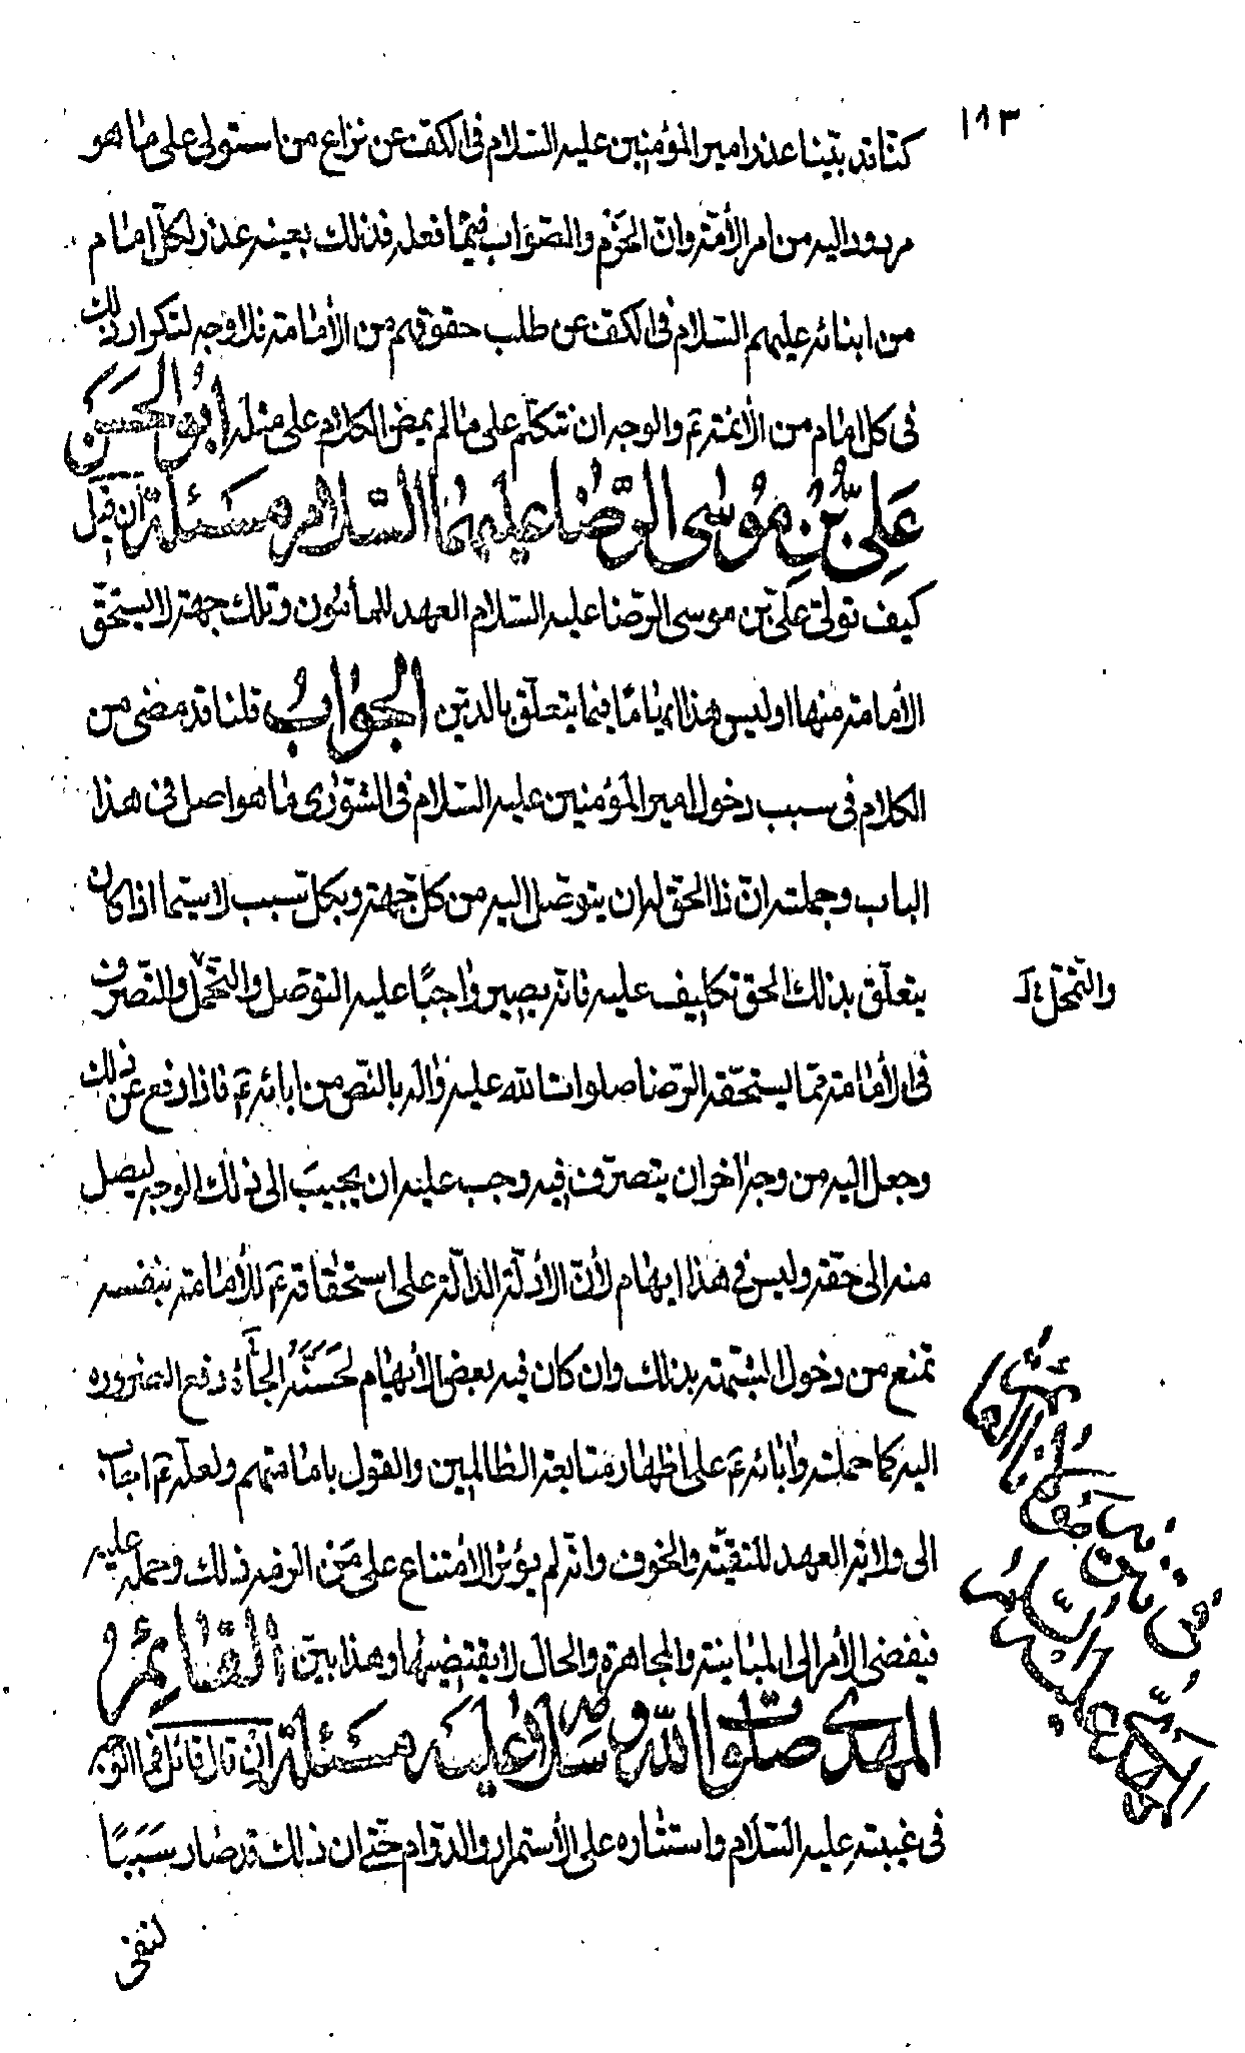 ١٨٣
كتابنا قد بيّنا عذر امير المؤمنين عليه السّلام فى الكفّ عن نزاع من استولى على ما هو
مردود اليه من امر الأمّة وانّ الحَزم والصّواب فيما فعله فذلك بعينه عذر لكلّ امام
من ابنائه عليهم السّلام فى الكفّ عن طلب حقوقهم من الأمامة فلا وجه لتكرار ذلك
فى كل امام من الأئمّة ع والوجه ان نتكلّم على ما لم يمض الكلام على مثله ابو الحسن
عَلِىُّ بْنِ مُوسَى الرّضا عليهما السّلام مَسْئَلة ان قيل
كيف تولّى علىّ بن موسى الرّضا عليه السّلام العهد للمأمون وتلك جهة لا يستحقّ
الأمامة منها اوليس هذا ايهامًا فيما يتعلّق بالدين الجواب قلنا قد مضى من
الكلام فى سبب دخول امير المؤمنين عليه السّلام فى الشّورى ما هو اصل فى هذا
الباب وجملته انّ ذا الحق له ان يتوصّل اليه من كلّ جهة وبكل سبب لا سيّما اذا كان
يتعلّق بذلك الحق تكليف عليه فانّه يصير واجبًا عليه التوصّل والتحمّل والتصرف
والتمحّل
فى الأمامة ممّا يستحقّه الرّضا صلوات الله عليه واله بالنّص من ابائه ع فاذا دفع عن ذلك
وجعل اليه من وجه اخر ان يتصرّف فيه وجب عليه ان يجيبَ الى ذلك الوجه ليصل
منه الى حقّه وليس فى هذا ايهام لأنّ الأدلّة الدّالّة على استحقاقه ع للأمامة بنفسه
تمنع من دخول الشبهة بذلك وان كان فيه بعض الأيهام لحَسَنَهُ الجآء دفع الضروره
اليه كما حملته وابائه ع على اظهار متابعة الظالمين والقول بامامتهم ولعلّه ع اجاب
الى ولاية العهد للتقيّة والخوف وانه لم يؤثر الأمتناع على مَن الزمه ذلك وحمله عليه
فيفضى الأمر الى المباينة والمجاهرة والحال لا يقتضيها وهذا بيّن القَائِمْ
المهدى صلوات الله وسلامه عليه مَسْئَلة ان قال قائل فما الوجه
فى غيبته عليه السّلام واستتاره على الأستمرار والدّوام حتى ان ذلك قد صار سَبَبًا
لنفى